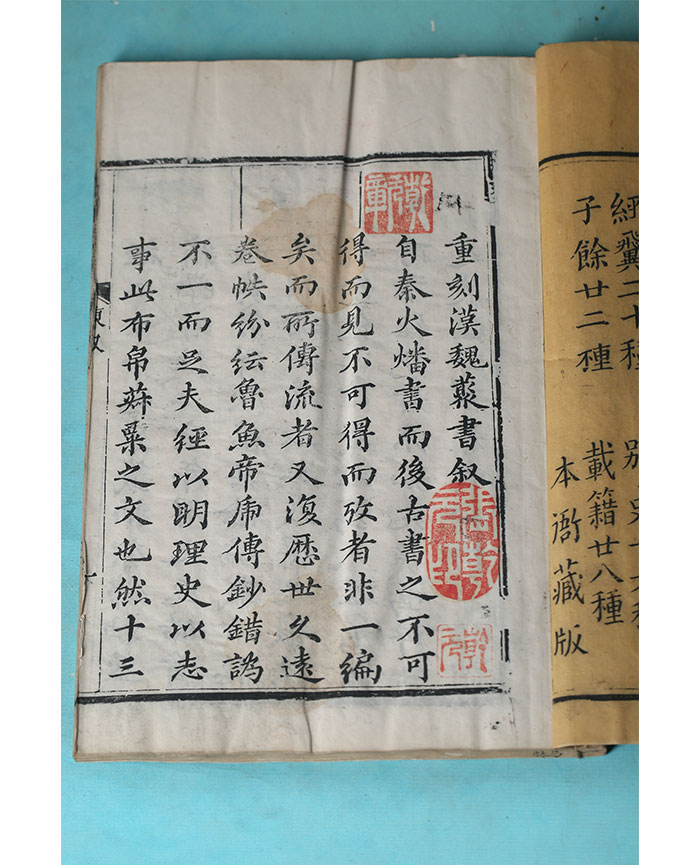 經翼二十種
子餘廿二種 載籍廿八種
本衙藏版
重刻漢魏藂書叙
自秦火燔書而後古書之不可
得而見不可得而攷者非一編
矣而所傳流者又復歷世久遠
卷帙紛紜魯魚帝虎傳鈔錯譌
不一而足夫經以明理史以志
事此布帛菽粟之文也然十三